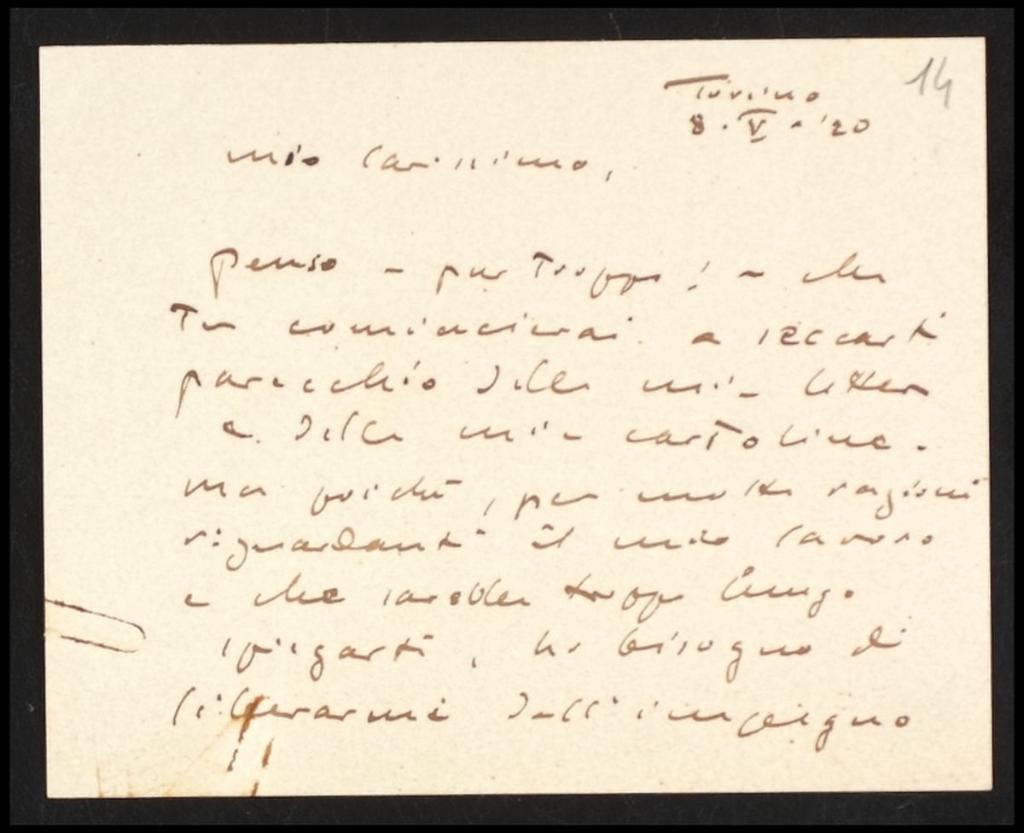 14
Torino
8 · V - '20
mio carissimo,
penso - pur troppo! - che
Tu comincierai a seccarti
parecchio delle mie lettere
e delle mie cartoline.
ma poiché, per molte ragioni
riguardanti il mio lavoro
e che sarebbe troppo lungo
spiegarti, ho bisogno di
liberarmi dall'impegno